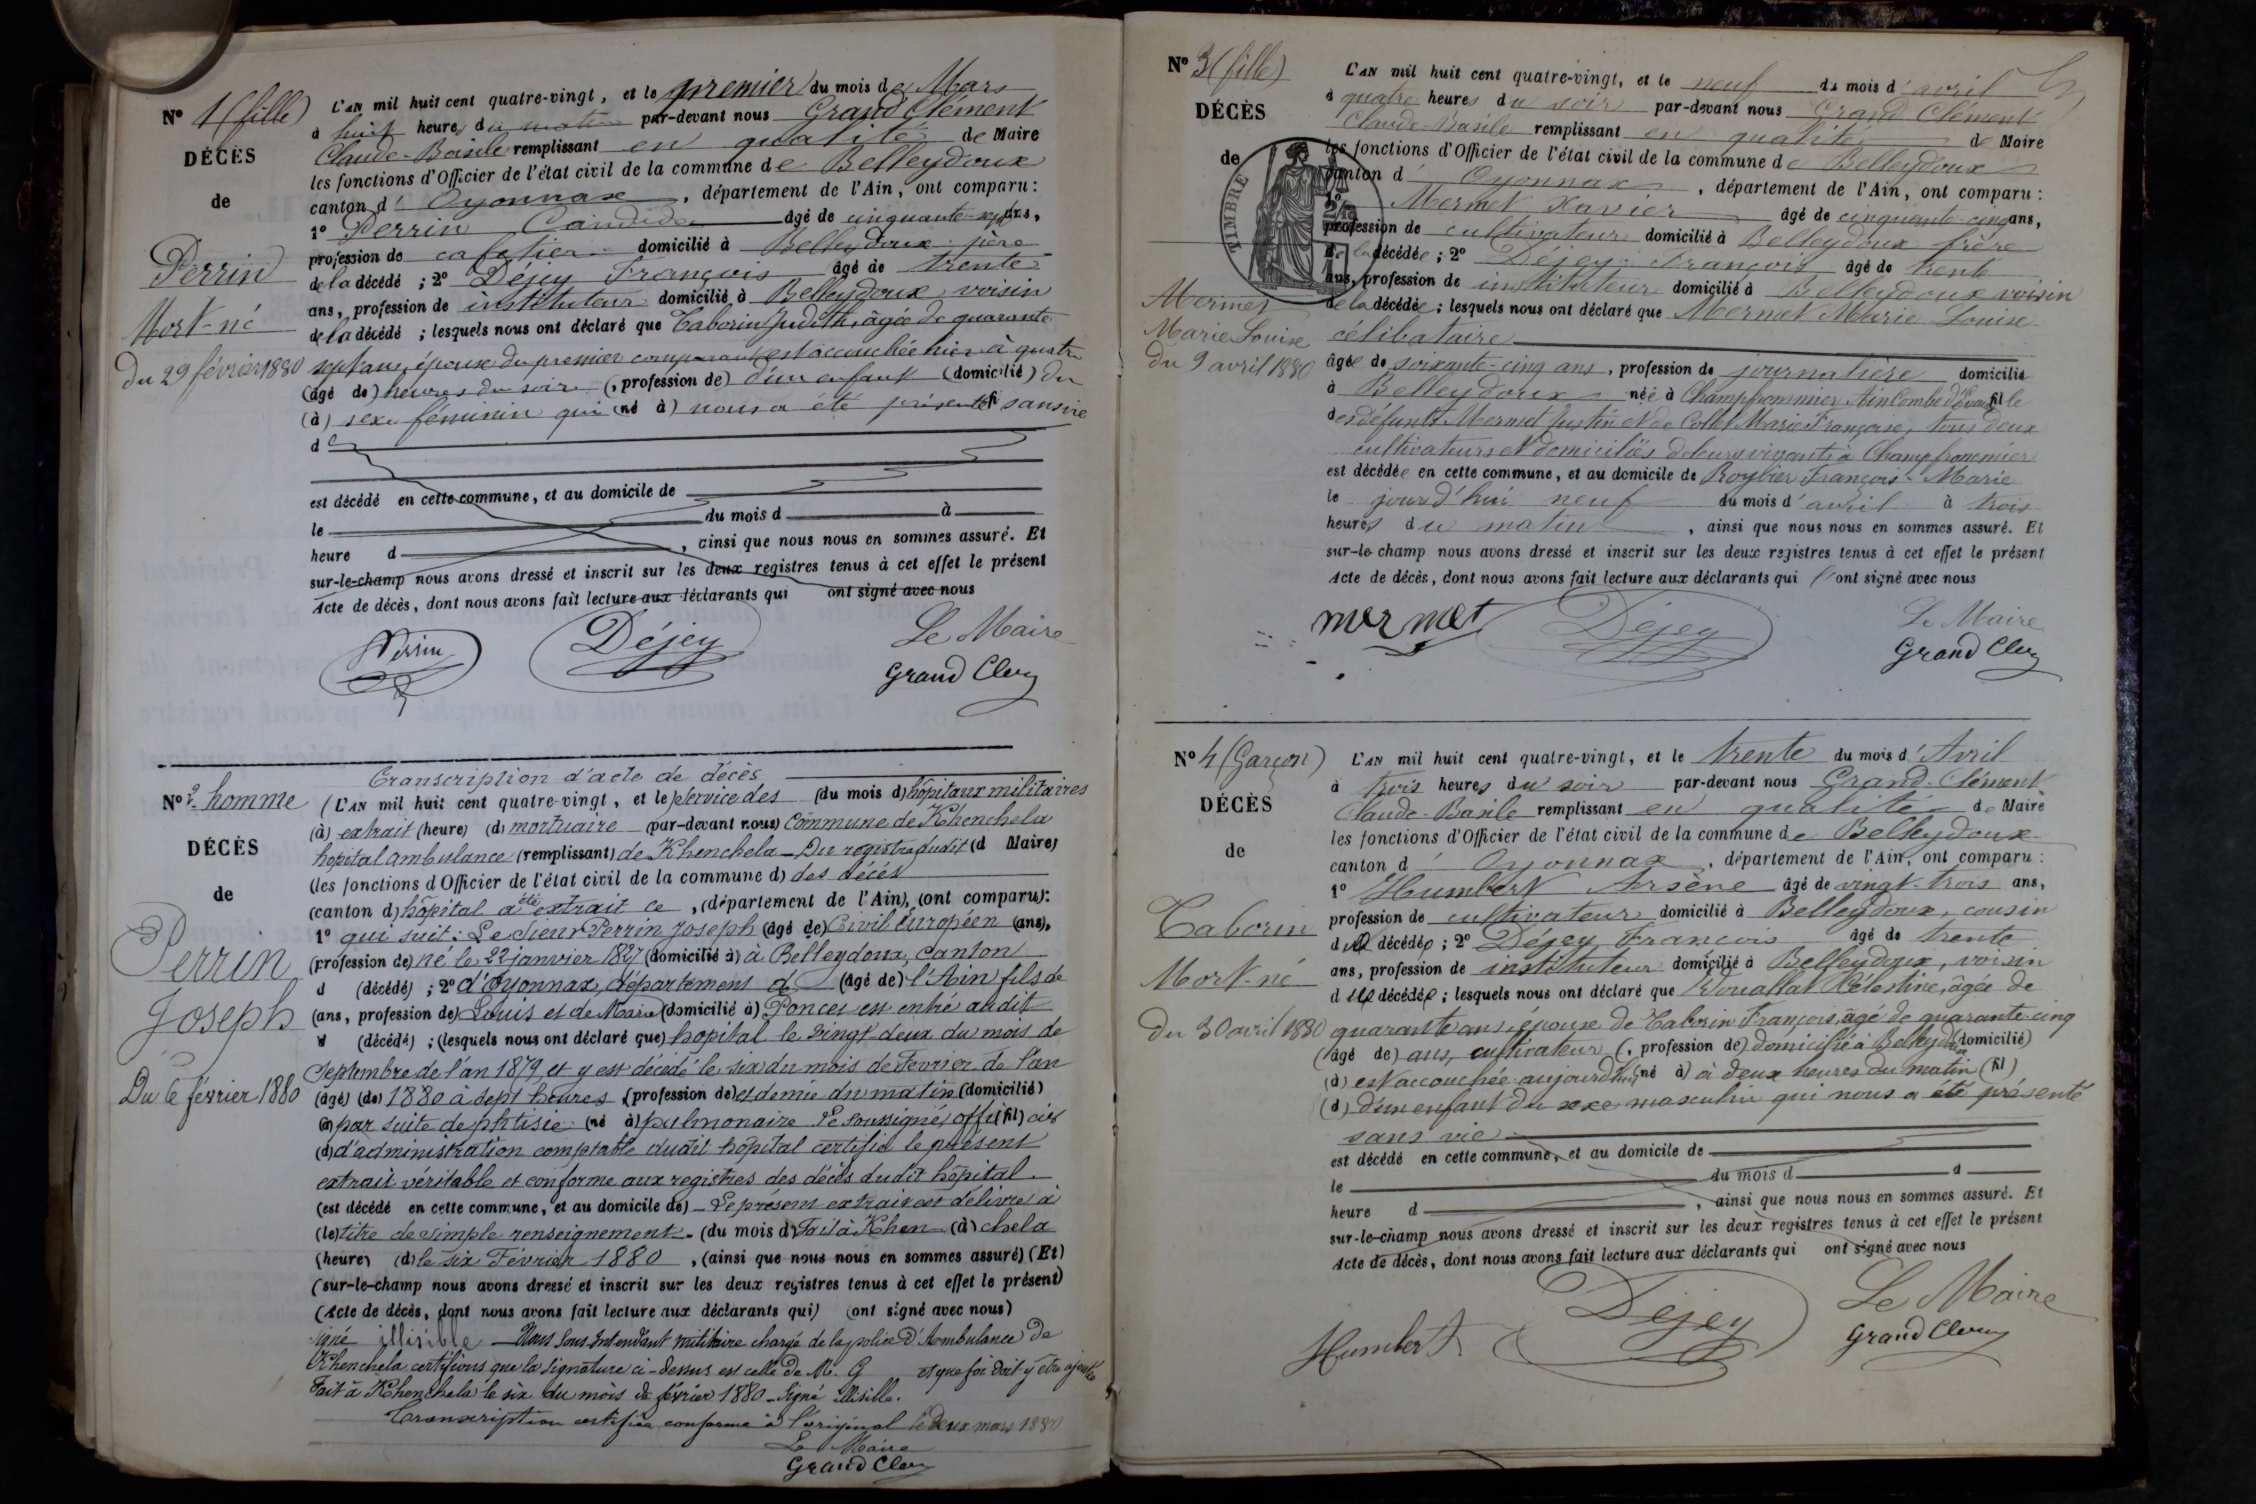 N° 1 (fille)
DÉCÈS
de
Perrin
Mort-né
du 29 février 1880
L'AN mil huit cent quatre-vingt, et le premier du mois de Mars
à huit heures du matin par-devant nous Grand Clément
Claude-Basile remplissant en qualité de Maire
les fonctions d'Officier de l'état civil de la commune de Belleydoux
canton d'Oyonnax, département de l'Ain, ont comparu :
1° Perrin Candide âgé de cinquante-sept ans,
profession de cafetier domicilié à Belleydoux père
de la décédé ; 2° Déjey François âgé de trente
ans, profession de instituteur domicilié à Belleydoux voisin
de la décédé ; lesquels nous ont déclaré que Taborin Judith, âgée de quarante
sept ans, épouse du premier comparant est accouchée hier à quatre
(âgé de) heures du soir (, profession de) d'un enfant (domicilié) du
(à) sexe féminin qui (né à) nous a été présenté sans vie
d
est décédé en cette commune, et au domicile de
le du mois d à
heure d , ainsi que nous nous en sommes assuré. Et
sur-le-champ nous avons dressé et inscrit sur les deux registres tenus à cet effet le présent
Acte de décès, dont nous avons fait lecture aux déclarants qui ont signé avec nous
Perrin Déjey Le Maire
Grand Clem
N° 2 homme
DÉCÈS
de
Perrin
Joseph
Du 6 février 1880
Transcription d'acte de décès
(L'AN mil huit cent quatre-vingt, et le) Service des (du mois d) hôpitaux militaires
(à) extrait (heure) (d) mortuaire (par-devant nous) Commune de Khenchela
hopital ambulance (remplissant) de Khenchela - Du registre dudit (d Maire)
(les fonctions d'Officier de l'état civil de la commune d) des décès
(canton d) hôpital a été extrait ce , (département de l'Ain), (ont comparu) :
1° qui suit : Le Sieur Perrin Joseph (âgé de) Civil Européen (ans),
(profession de) né le 22 janvier 1827 (domicilié à) à Belleydoux, canton
d (décédé) ; 2° d'Oyonnax, département de (âgé de) l'Ain fils de
(ans, profession de) Louis et de Marie (domicilié à) Poncet est entré audit
d (décédé) ; (lesquels nous ont déclaré que) hopital le vingt-deux du mois de
Septembre de l'an 1879 et y est décédé le six du mois de Février de l'an
(âgé) (de) 1880 à sept heures (profession de) et demie du matin (domicilié)
(à) par suite de phtisie (né à) pulmonaire Le soussigné, offi (fil) cier
(d) d'administration comptable dudit hôpital certifie le présent
extrait véritable et conforme aux registres des décès dudit hôpital.
(est décédé en cette commune, et au domicile de) - Le présent extrait est délivré à
(le) titre de simple renseignement - (du mois d) Fait à Khen (à) chela
(heure) (d) le six Février 1880 , (ainsi que nous nous en sommes assuré) (Et)
(sur-le-champ nous avons dressé et inscrit sur les deux registres tenus à cet effet le présent)
(Acte de décès, dont nous avons fait lecture aux déclarants qui) (ont signé avec nous)
signé illisible - Nous Sous Intendant militaire chargé de la police d'Ambulance de
Khenchela certifions que la signature ci-dessus est celle de M. G et que foi doit y être ajoutée
Fait à Khenchela le six du mois de février 1880 - Signé illisible.
Transcription certifiée conforme à l'original le deux mars 1880
Le Maire
Grand Clem
N° 3 (fille)
DÉCÈS
de
TIMBRE
Mermet
Marie Louise
du 9 avril 1880
L'AN mil huit cent quatre-vingt, et le neuf du mois d'avril
à quatre heures du soir par-devant nous Grand Clément
Claude-Basile remplissant en qualité de Maire
les fonctions d'Officier de l'état civil de la commune de Belleydoux
canton d'Oyonnax, département de l'Ain, ont comparu :
1° Mermet Xavier âgé de cinquante-cinq ans,
profession de cultivateur domicilié à Belleydoux frère
de la décédée ; 2° Déjey François âgé de trente
ans, profession de instituteur domicilié à Belleydoux voisin
de la décédée ; lesquels nous ont déclaré que Mermet Marie Louise
célibataire
âgée de soixante-cinq ans, profession de journalière domicilié
à Belleydoux née à Champfrommier Ain fille
des défunts Mermet Justin et de Collet Marie Françoise, tous deux
cultivateurs et domiciliés de leurs vivants à Champfrommier
est décédée en cette commune, et au domicile de Roybier François-Marie
le jourd'hui neuf du mois d'avril à trois
heures du matin , ainsi que nous nous en sommes assuré. Et
sur-le-champ nous avons dressé et inscrit sur les deux registres tenus à cet effet le présent
Acte de décès, dont nous avons fait lecture aux déclarants qui ont signé avec nous
mermet Déjey Le Maire
Grand Clem
N° 4 (Garçon)
DÉCÈS
de
Taborin
Mort-né
Du 30 avril 1880
L'AN mil huit cent quatre-vingt, et le trente du mois d'Avril
à trois heures du soir par-devant nous Grand-Clément
Claude-Basile remplissant en qualité de Maire
les fonctions d'Officier de l'état civil de la commune de Belleydoux
canton d'Oyonnax, département de l'Ain, ont comparu :
1° Humbert Arsène âgé de vingt-trois ans,
profession de cultivateur domicilié à Belleydoux, cousin
du décédé ; 2° Déjey François âgé de trente
ans, profession de instituteur domicilié à Belleydoux, voisin
du décédé ; lesquels nous ont déclaré que Célestine, âgée de
quarante ans, épouse de Taborin François, âgé de quarante-cinq
(âgé de) ans, cultivateur (, profession de) domicilié à Belleydoux (domicilié)
(à) est accouchée aujourd'hui (né à) à deux heures du matin (fil)
(d) d'un enfant du sexe masculin qui nous a été présenté
sans vie
est décédé en cette commune, et au domicile de
le du mois d à
heure d , ainsi que nous nous en sommes assuré. Et
sur-le-champ nous avons dressé et inscrit sur les deux registres tenus à cet effet le présent
Acte de décès, dont nous avons fait lecture aux déclarants qui ont signé avec nous
Humbert A Déjey Le Maire
Grand Clem